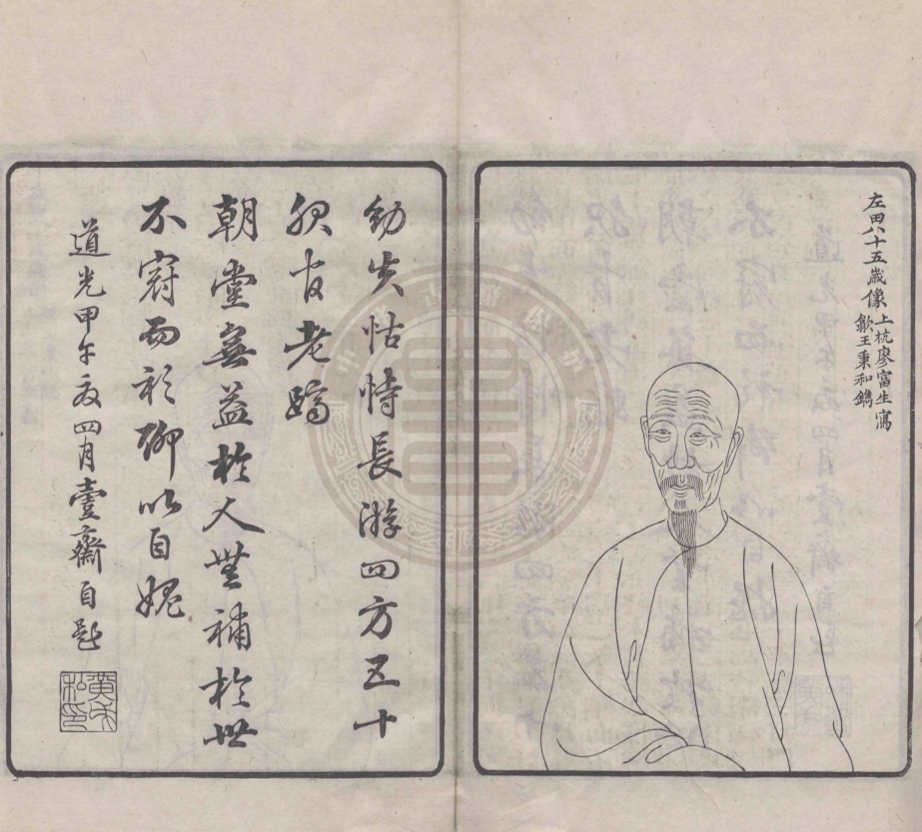 左田八十五歲像
上杭廖富生寫
歙王秉和鐫
幼失怙恃長游四方五十
服官老躋
朝堂無益於人無補於世
不冠而衫聊以自媿
道光甲午夏四月壹齋自題